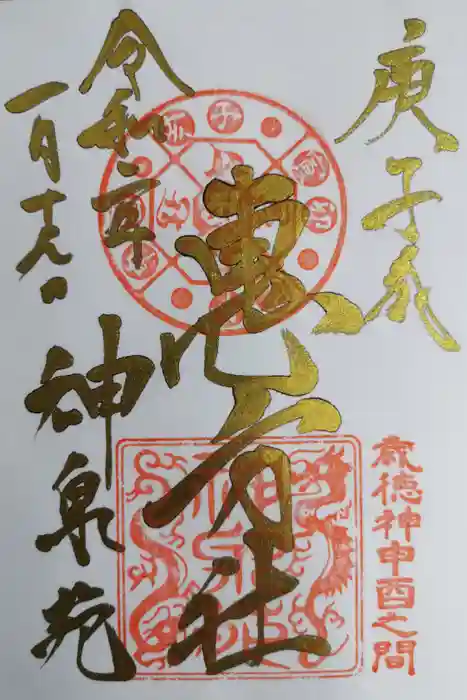 庚子歳
歳徳神申酉之間
恵方社
令和二年
一月十九日
神泉苑